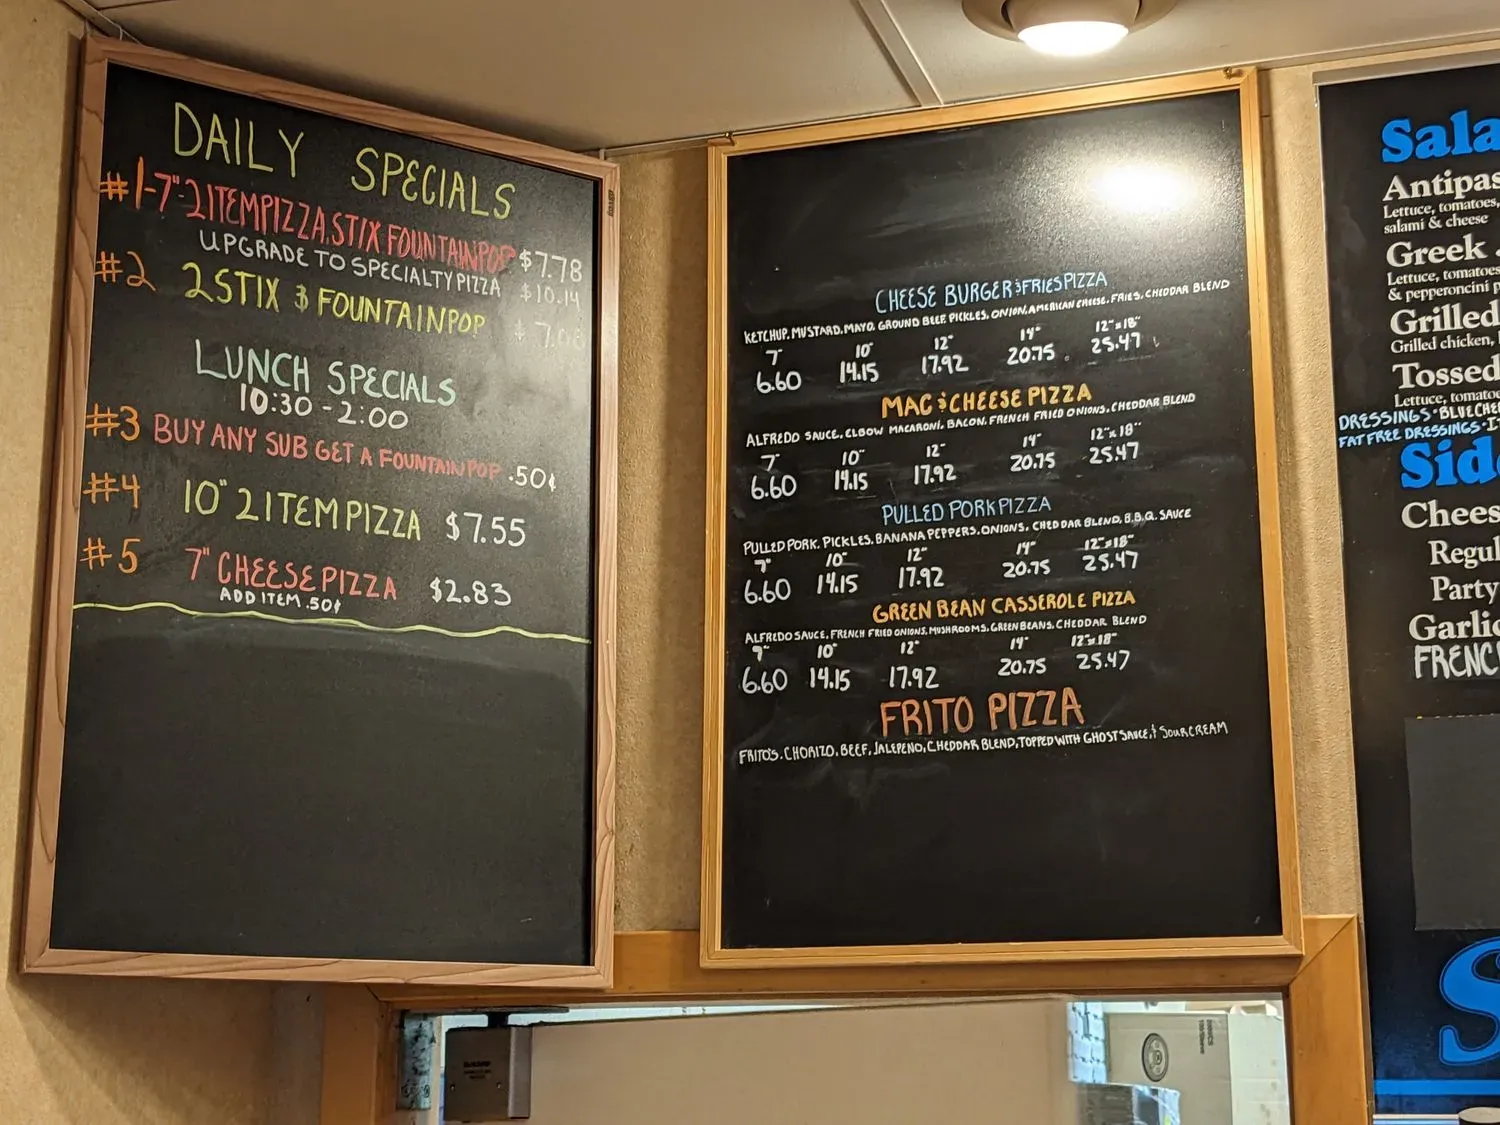 DAILY SPECIALS
#1-7"-2 ITEM PIZZA, STIX FOUNTAIN POP $7.78
UPGRADE TO SPECIALTY PIZZA $10.14
#2 2 STIX & FOUNTAIN POP
LUNCH SPECIALS
10:30 - 2:00
#3 BUY ANY SUB GET A FOUNTAIN POP .50¢
#4 10" 2 ITEM PIZZA $7.55
#5 7" CHEESE PIZZA $2.83
ADD ITEM .50¢
CHEESE BURGER & FRIES PIZZA
KETCHUP, MUSTARD, MAYO, GROUND BEEF, PICKLES, ONION, AMERICAN CHEESE, FRIES, CHEDDAR BLEND
7" 10" 12" 14" 12"x18"
6.60 14.15 17.92 20.75 25.47
MAC & CHEESE PIZZA
ALFREDO SAUCE, ELBOW MACARONI, BACON, FRENCH FRIED ONIONS, CHEDDAR BLEND
7" 10" 12" 14" 12"x18"
6.60 14.15 17.92 20.75 25.47
PULLED PORK PIZZA
PULLED PORK, PICKLES, BANANA PEPPERS, ONIONS, CHEDDAR BLEND, B.B.Q. SAUCE
7" 10" 12" 14" 12"x18"
6.60 14.15 17.92 20.75 25.47
GREEN BEAN CASSEROLE PIZZA
ALFREDO SAUCE, FRENCH FRIED ONIONS, MUSHROOMS, GREEN BEANS, CHEDDAR BLEND
7" 10" 12" 14" 12"x18"
6.60 14.15 17.92 20.75 25.47
FRITO PIZZA
FRITO'S, CHORIZO, BEEF, JALEPENO, CHEDDAR BLEND, TOPPED WITH GHOST SAUCE, & SOUR CREAM
Sala
Antipas
Lettuce, tomatoes,
salami & cheese
Greek
Lettuce, tomatoes
& pepperoncini p
Grilled
Grilled chicken,
Tossed
Lettuce, tomatoe
DRESSINGS • BLUE CHE
FAT FREE DRESSINGS • I
Side
Chees
Regul
Party
Garlic
FRENC
S